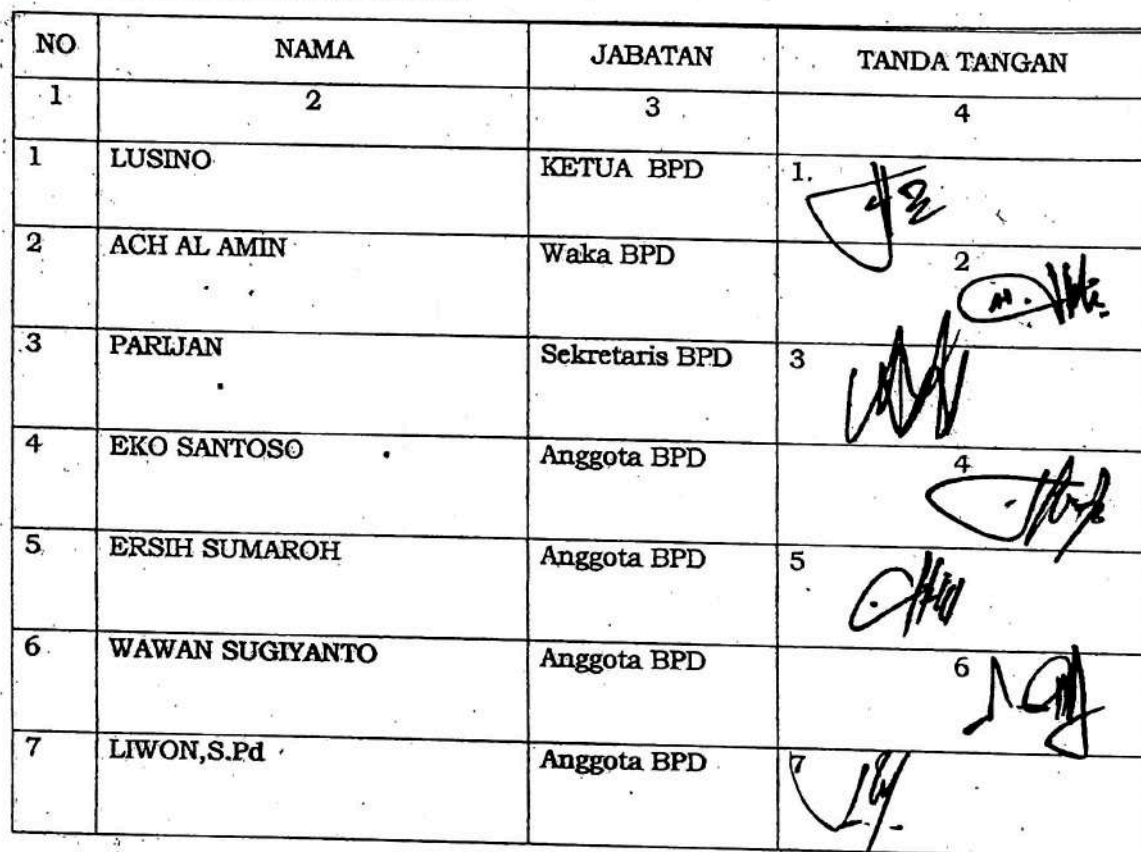 NO NAMA JABATAN TANDA TANGAN
1 2 3 4
1 LUSINO KETUA BPD 1.
2 ACH AL AMIN Waka BPD 2
3 PARIJAN Sekretaris BPD 3
4 EKO SANTOSO Anggota BPD 4
5 ERSIH SUMAROH Anggota BPD 5
6 WAWAN SUGIYANTO Anggota BPD 6
7 LIWON,S.Pd Anggota BPD 7